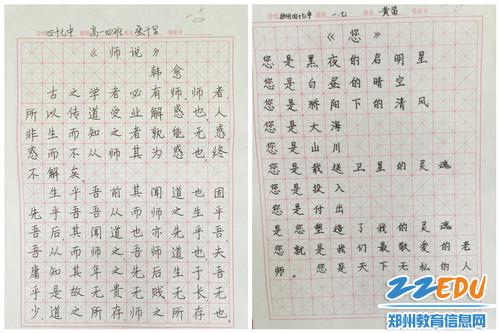 四十七中 高一四班 张千呈
一等
《师说》
韩愈
古之学者必有师.师者,
所以传道受业解惑也.人
非生而知之者孰能无惑
惑而不从师其为惑也终
不解矣.
生乎吾前其闻道也固
先乎吾吾从而师之生乎
吾后其闻道也亦先乎吾
吾从而师之吾师道也夫
庸知其年之先后生于吾
乎是故无贵无贱无长无
少.道之所存师之所存也
郑州四十七中 一.七 黄笛
《您》
您是黑夜的启明星
您是白昼的晴空
您是骄阳下的清风
您是大海
您是山川
您是我送卫星的灵魂
您是投入
您是付出
是您塑造了我的灵魂
您就是我们最敬爱的老
师。您是天下无私的人
22EDU
郑州教育信息网